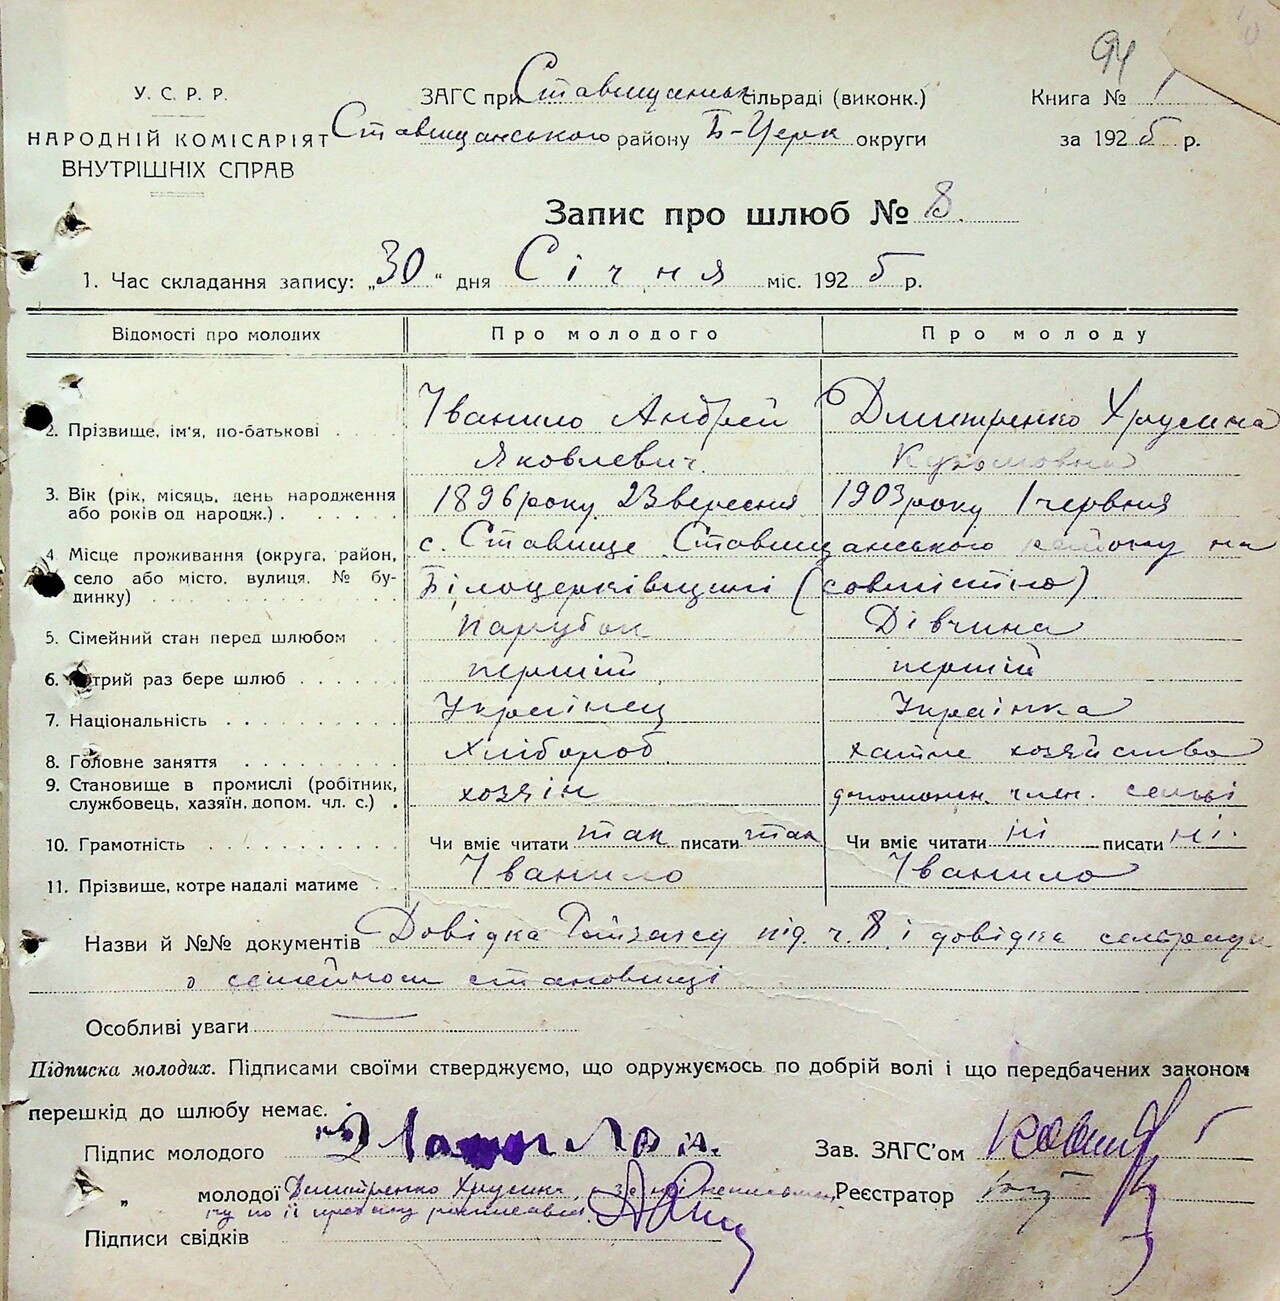 94
У. С. Р. Р.
НАРОДНІЙ КОМІСАРІЯТ
ВНУТРІШНІХ СПРАВ
ЗАГС при Ставищанськ сільраді (виконк.)
Ставищанського району Б-Церк округи
Книга № 1
за 1925 р.
Запис про шлюб № 8.
1. Час складання запису: „30“ дня Січня міс. 1925 р.
Відомості про молодих Про молодого Про молоду
2. Прізвище, ім'я, по-батькові Іванило Андрей Дмитренко Хрусина
Яковлевич. Кузьмовна
3. Вік (рік, місяць, день народження або років од народж.) 1896 року 23 вересня 1903 року 1 червня
4. Місце проживання (округа, район, село або місто, вулиця, № будинку) с. Ставище Ставищанського району на
Білоцерківщині (совмістно).
5. Сімейний стан перед шлюбом Парубок Дівчина
6. Котрий раз бере шлюб перший перший
7. Національність Українец Українка
8. Головне заняття Хлібороб хатне хозяйство
9. Становище в промислі (робітник, службовець, хазяїн, допом. чл. с.) хозяін допоможн. член. семьі
10. Грамотність Чи вміє читати так писати так Чи вміє читати ні писати ні.
11. Прізвище, котре надалі матиме Іванило Іванило
Назви й №№ документів Довідка Райзагсу під ч. 8 і довідка сельради
о семейном становищі
Особливі уваги
Підписка молодих. Підписами своїми стверджуємо, що одружуємось по добрій волі і що передбачених законом
перешкід до шлюбу немає.
Підпис молодого
Зав. ЗАГС'ом
„ молодої Дмитренко Хрусина, а за неі неписьменну по іі прозьбу росписався
Реєстратор
Підписи свідків